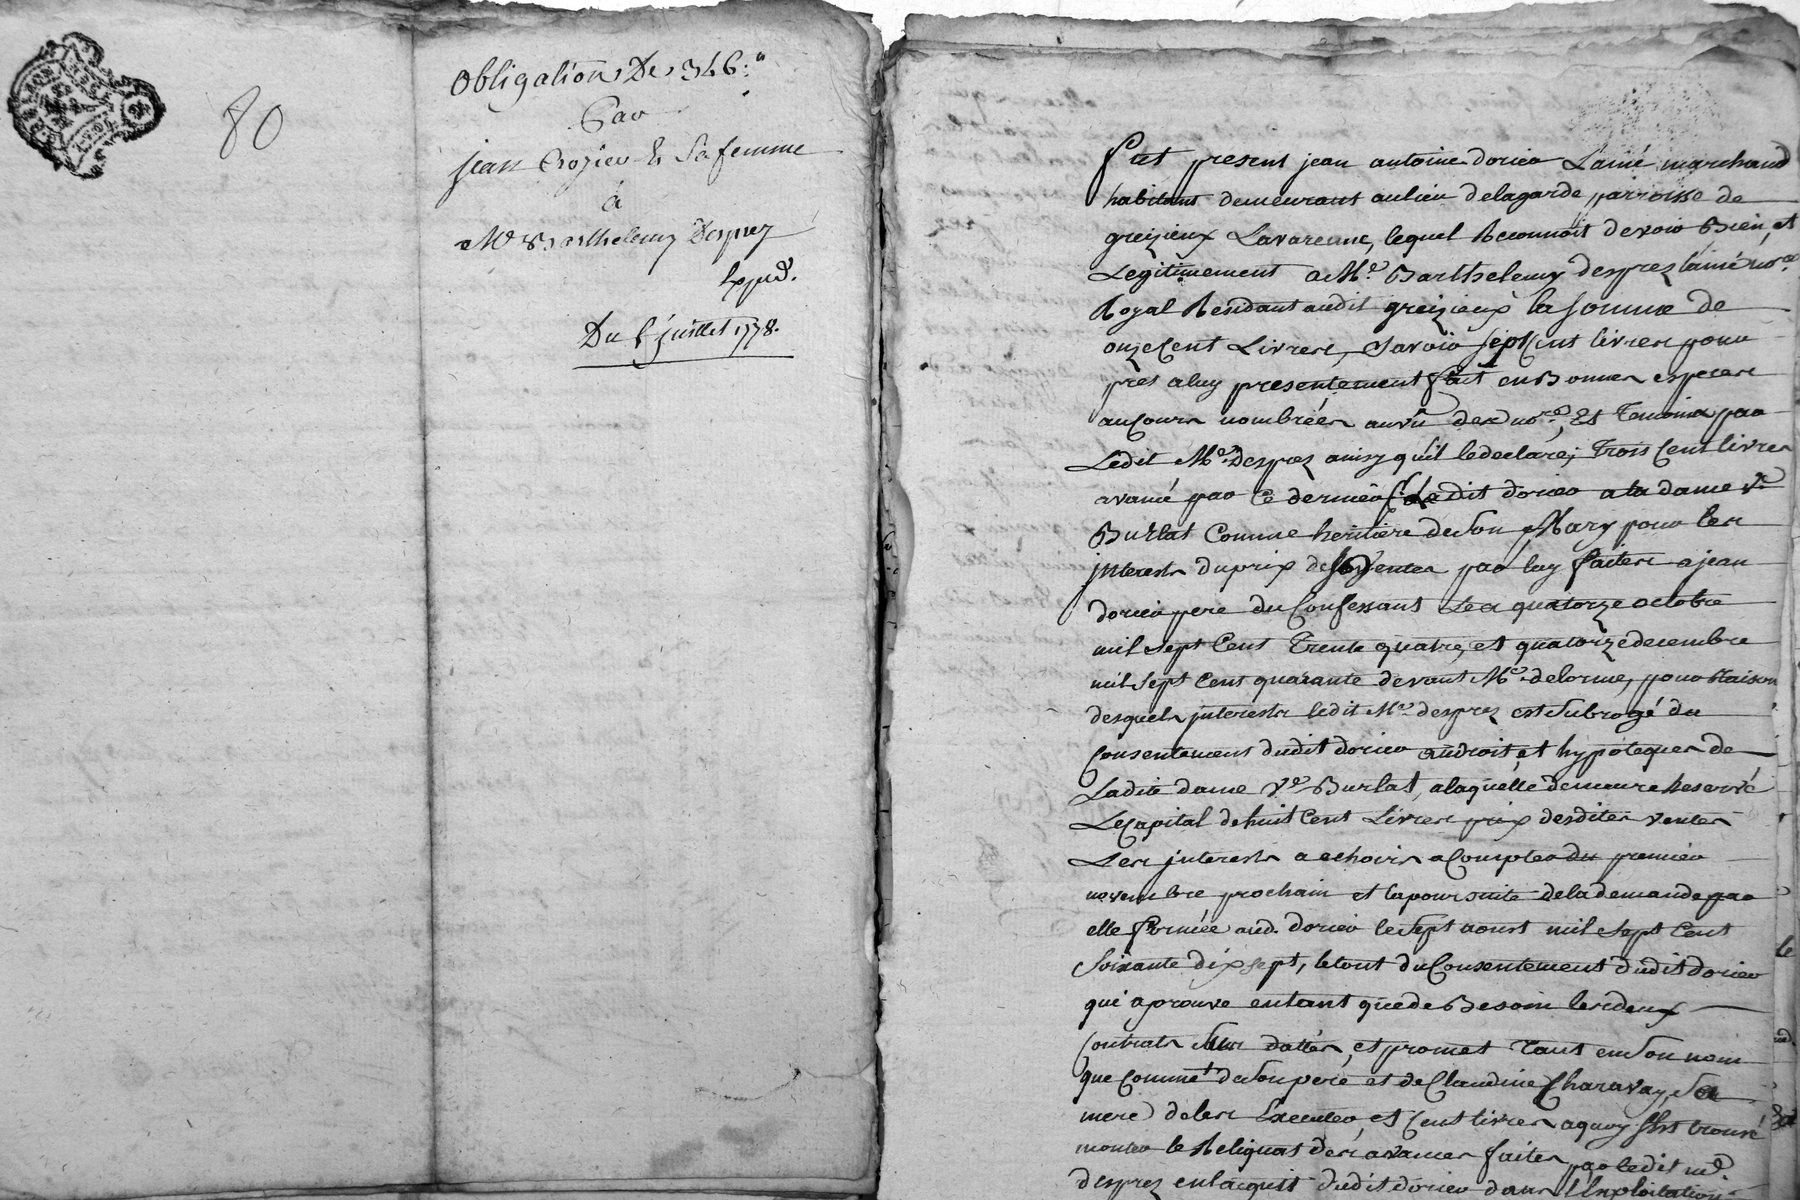 80
Obligation De 346.ᵗᵗ
Par
jean Crozier & Sa femme
à
Mᵉ Barthelemy Desprez
Expéd.
Du 6 juillet 1778.
fut present jean antoine dorier Lainé marchand
habitant demeurant au lieu de lagarde parroisse de
greizieux Lavarenne, lequel Reconnoit devoir Bien, et
Legitimement a Mᵉ. Barthelemy desprez lainé noʳᵉ
Royal Residant audit greizieux la somme de
onze Cent Livres, Savoir sept Cent livres pour
prest a luy presentement fait en Bonnes especes
au Cours nombrées au vû des noʳᵉ, Et Temoins par
Ledit Mᵉ. Desprez ainsy qu'il le declare; Trois Cent livres
avancé par ce dernier Ledit dorier a la dame vᵉ
Burlat Comme heritiere de Son Mary pour les
jnterests du prix des ventes par luy faites a jean
dorier pere du Confessant Les quatorze octobre
mil sept Cent Trente quatre, et quatorze decembre
mil sept Cent quarante devant Mᵉ. delorme, pour Raison
desquels jnterests ledit Mᵉ. desprez est Subrogé du
Consentement dudit dorier au droit, et hypoteques de
Ladite dame vᵉ Burlat, a laquelle demeure Reservé
Le Capital de huit Cent Livres prix desdites ventes
Les jnterests a echoirs a Compter du premier
novembre prochain et la poursuite de la demande par
elle formée aud. dorier le Sept aoust mil sept Cent
Soixante dix sept, le tout du Consentement dudit dorier
qui aprouve en tant que de Besoin les deux
Contrats Sus dattés, et promet Tant en Son nom
que Comme de Son pere et de Claudine Charavay, Sa
mere de les Executer, et Cent livres a quoy s'est trouvé
monter le Reliquat des avances faites par ledit mᵉ
desprez en lacquit dudit dorier dans l'Exploitation